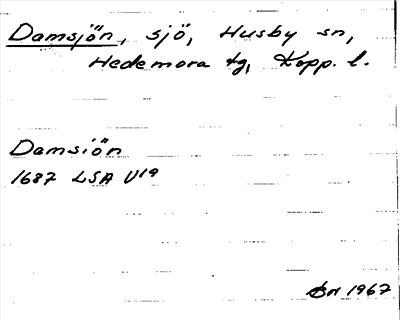 Damsjön, sjö, Husby sn,
Hedemora tg, Kopp. l.
Damsjön
1687 LSA U19
1967